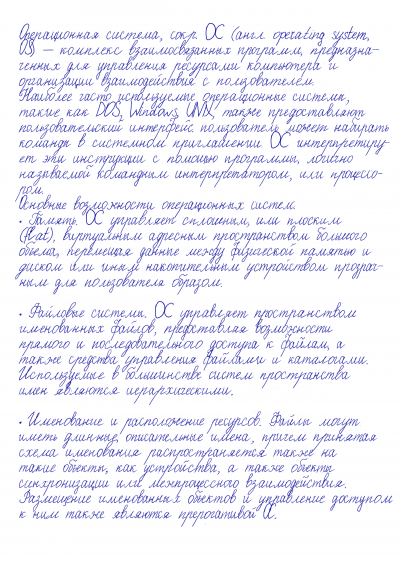 Операционная система, сокр. ОС (англ. operating system,
OS) — комплекс взаимосвязанных программ, предназна-
ченных для управления ресурсами компьютера и
организации взаимодействия с пользователем.
Наиболее часто используемые операционные системы,
такие как DOS, Windows, UNIX, также предоставляют
пользовательский интерфейс: пользователь может набирать
команды в системном приглашении. ОС интерпретиру-
ет эти инструкции с помощью программы, логично
называемой командным интерпретатором, или процессо-
ром.
Основные возможности операционных систем.
• Память. ОС управляет сплошным, или плоским
(flat), виртуальным адресным пространством большого
объема, перемещая данные между физической памятью и
диском или иным накопительным устройством прозрач-
ным для пользователя образом.
• Файловые системы. ОС управляет пространством
именованных файлов, представляя возможности
прямого и последовательного доступа к файлам, а
также средства управления файлами и каталогами.
Используемые в большинстве систем пространства
имен являются иерархическими.
• Именование и расположение ресурсов. Файлы могут
иметь длинные, описательные имена, причем принятая
схема именования распространяется также на
такие объекты, как устройства, а также объекты
синхронизации или межпроцессного взаимодействия.
Размещение именованных объектов и управление доступом
к ним также являются прерогативой ОС.